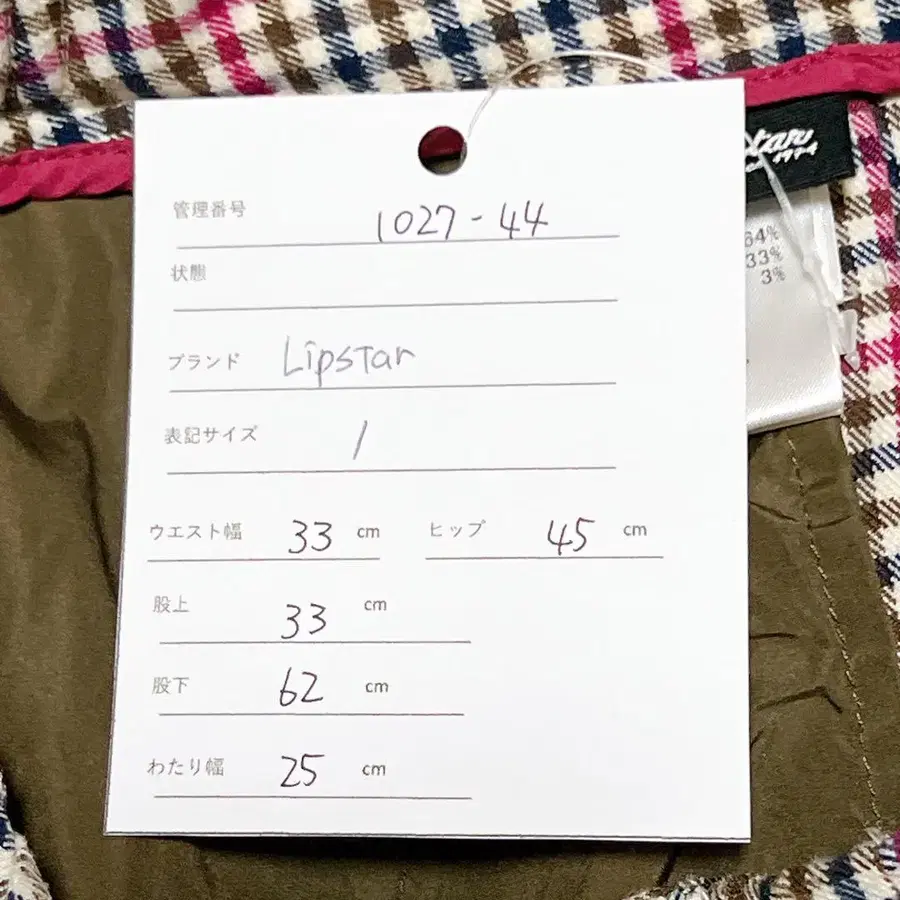 管理番号 1027-44
状態
ブランド Lipstar
表記サイズ 1
ウエスト幅 33 cm ヒップ 45 cm
股上 33 cm
股下 62 cm
わたり幅 25 cm
64%
33%
3%